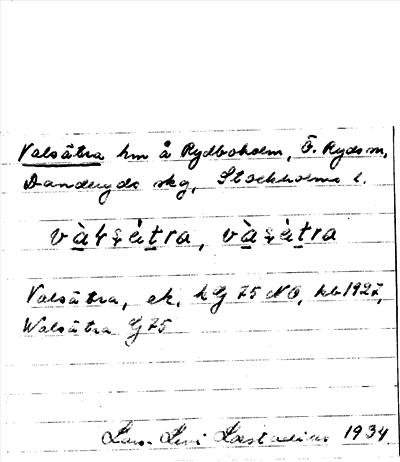 Valsätra hm å Rydboholm, Ö. Ryds sn,
Danderyds skg, Stockholms l.
Valsätra, ek, hg 75 NO, kb 1927,
Walsätra G 75
Lars-Levi Læstadius 1934